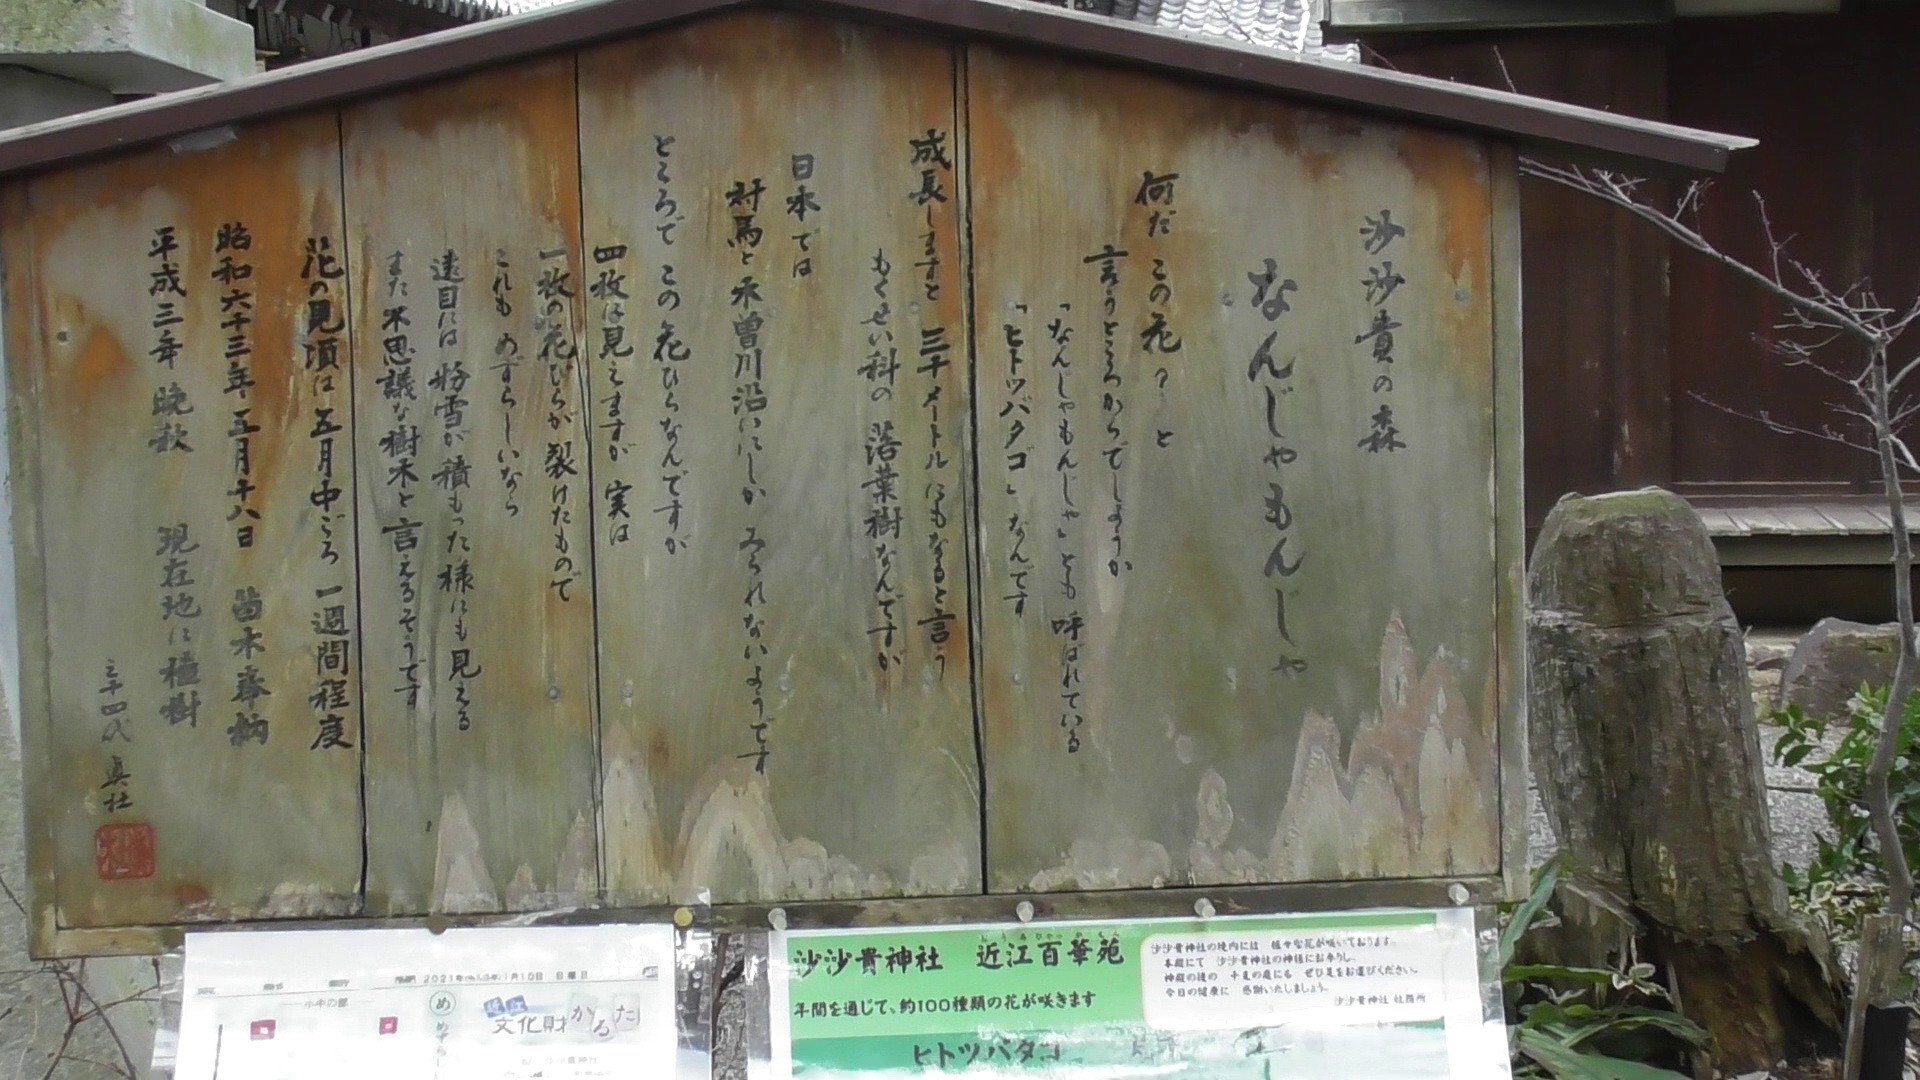 沙沙貴の森
なんじゃもんじゃ
何だ この花?と
言うところからでしょうか
「なんじゃもんじゃ」とも 呼ばれている
「ヒトツバタゴ」なんです
成長しますと 三十メートルにもなると言う
もくせい科の 落葉樹なんですが
日本では
対馬と木曽川沿いにしか みられないようです
ところで この花ひらなんですが
四枚に見えますが 実は
一枚の花びらが 裂けたもので
これも めずらしいなら
遠目には 粉雪が 積もった様にも見える
また不思議な樹木と言えるそうです
花の見頃は 五月中ごろ 一週間程度
昭和六十三年 五月十八日 苗木奉納
平成三年 晩秋 現在地に植樹
三十四代 真社
2021年 1月10日 日曜日
め
近江
文化財かるた
沙沙貴神社 近江百華苑
年間を通じて、約100種類の花が咲きます
沙沙貴神社の境内には 様々な花が咲いております。
本殿にて 沙沙貴神社の神様にお参りし、
神殿の後の 十支の庭にも ぜひ足をお運びください。
今日の健康に 感謝いたしましょう。
沙沙貴神社 社務所
ヒトツバタゴ